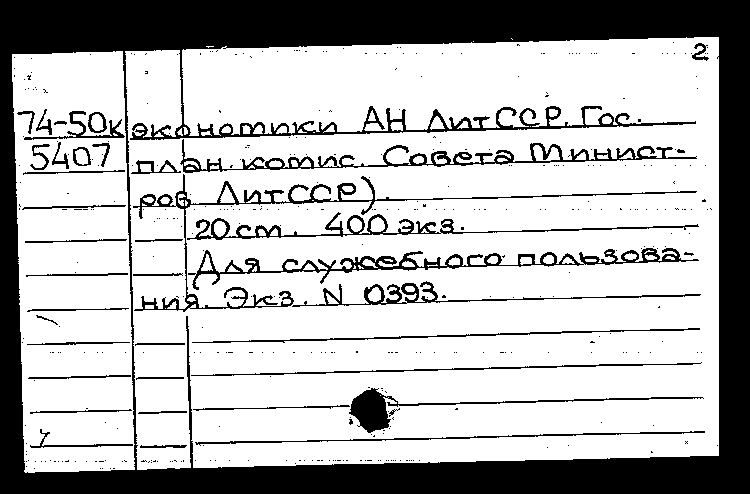 2
74-50к экономики АН ЛитССР. Гос.
5407 план. комис. Совета Минист-
ров ЛитССР).
20 cm. 400 экз.
Для служебного пользова-
ния. Экз. N 0393.